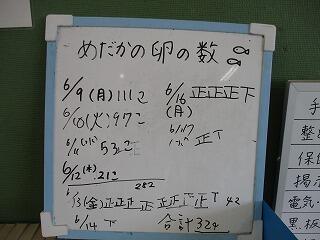 めだかの卵の数
6/9(月)111こ
6/10(火)97こ
6/11(水)53こ
6/12(木)21こ
282
6/13(金)正正正正正正下正下 42
6/14 下
6/16 正正正下
(月)
6/17 正下
合計324
手
整
保
掲示
電気・
黒板